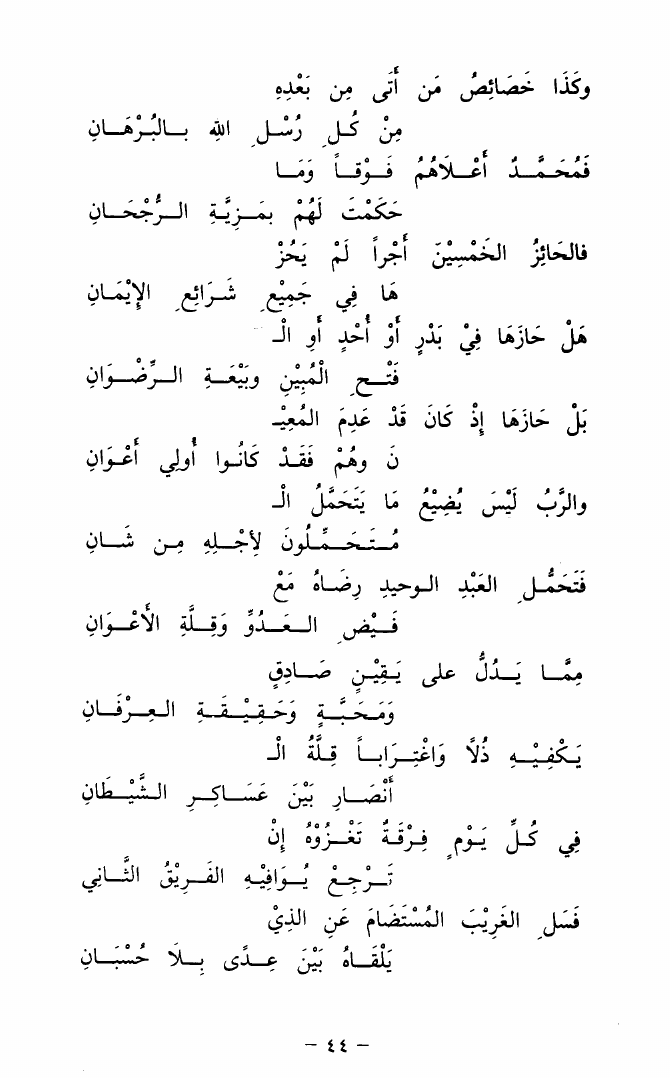 وكَذَا خَصَائِصُ مَن أَتَى مِن بَعْدِهِ
مِنْ كُـلِ رُسْـلِ الله بـالبُـرْهَـانِ
فَمُحَمَّـدٌ أَعْـلَاهُمُ فَـوْقـاً وَمَـا
حَكَمْتَ لَهُمْ بِمَـزِيَّـةِ الـرُّجْحَـانِ
فالحَائِزُ الخَمْسِيْنَ أَجْراً لَمْ يَحُزْ
هَا فِي جَمِيْعِ شَرَائِعِ الإِيْمَانِ
هَلْ حَازَهَا فِيْ بَدْرٍ أَوْ أُحُدٍ أَوِ الْـ
فَتْـحِ الْمُبِيْنِ وبَيْعَـةِ الـرِّضْـوَانِ
بَلْ حَازَهَا إِذْ كَانَ قَدْ عَدِمَ المُعِيْـ
نَ وهُمْ فَقَـدْ كَانُـوا أُولِي أَعْـوَانِ
والرَّبُ لَيْسَ يُضِيْعُ مَا يَتَحَمَّلُ الْـ
مُـتَـحَـمِّـلُونَ لِأَجْـلِهِ مِـن شَـانِ
فَتَحَمُّـلِ العَبْدِ الـوحيدِ رِضَـاهُ مَعْ
فَـيْـضِ الـعَـدُوِّ وَقِـلَّةِ الأَعْـوَانِ
مِمَّـا يَـدُلُّ على يَـقِيْـنٍ صَـادِقٍ
وَمَـحَـبَّـةٍ وَحَـقِـيْـقَـةِ العِـرْفَـانِ
يَـكْفِيْـه ذُلاً وَاغْتِـرَابـاً قِـلَّةُ الْـ
أَنْصَـارِ بَيْنَ عَسَـاكِـرِ الشَّيْـطَانِ
فِي كُـلِّ يَـوْمٍ فِـرْقَـةٌ تَغْـزُوْهُ إِنْ
تَـرْجِعْ يُـوَافِيْـهِ الفَـرِيْقُ الثَّـانِي
فَسَـلِ الغَرِيْبَ المُسْتَضَامَ عَنِ الذِيْ
يَلْقَـاهُ بَيْنَ عِـدًى بِـلَا حُسْبَـانِ
– ٤٤ –